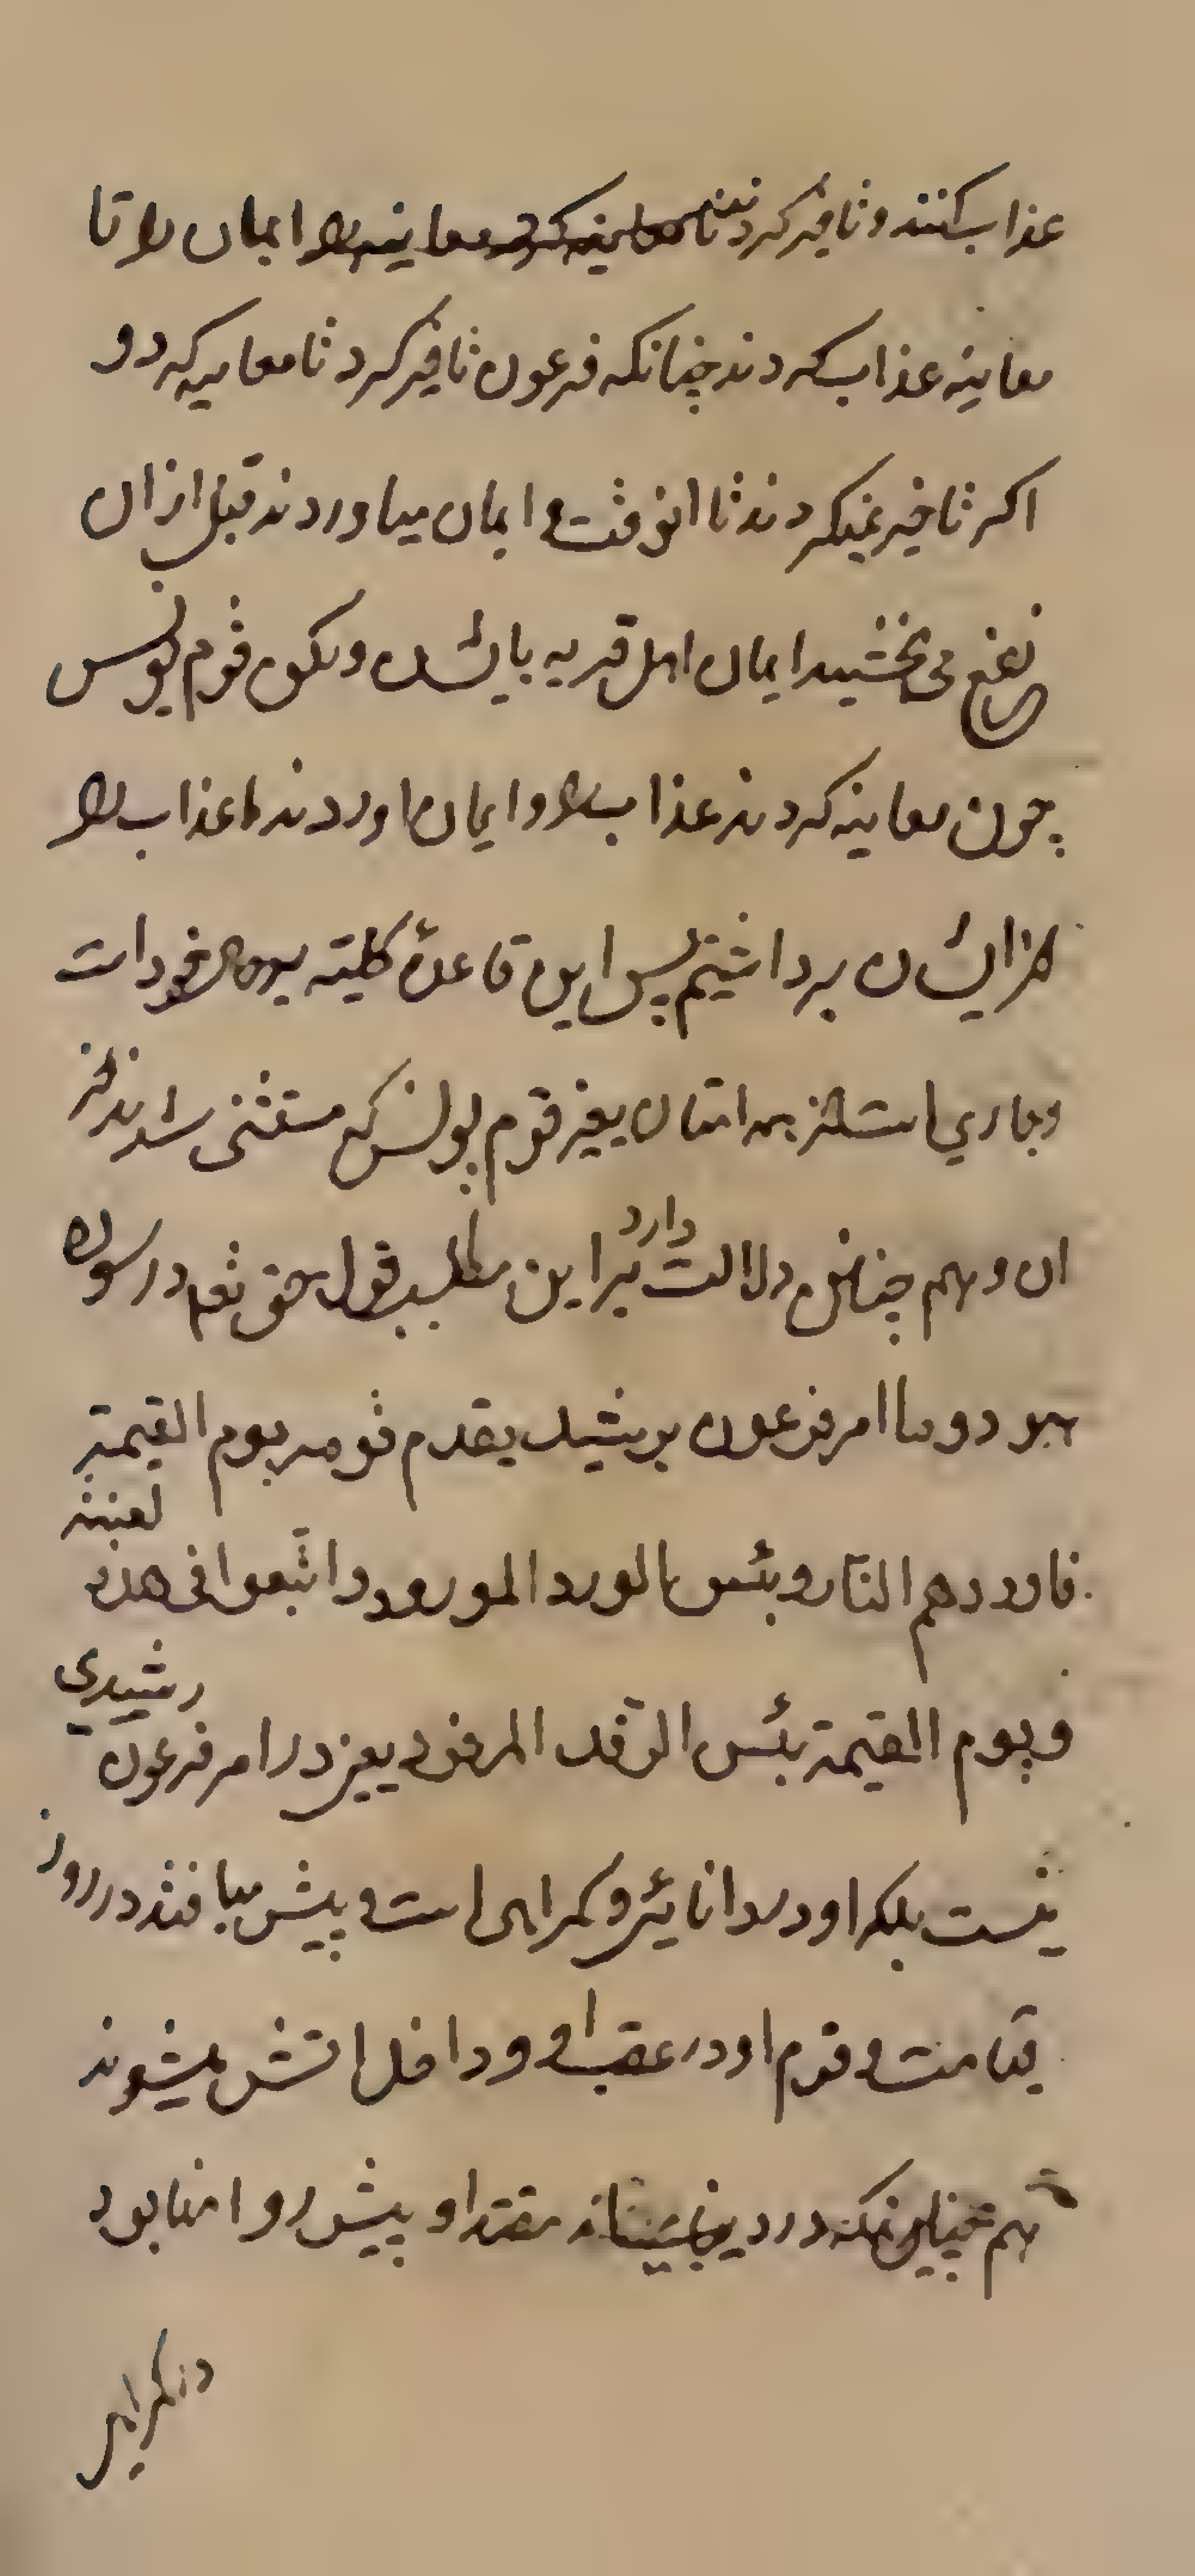 عذاب کنند و تاخیر کردند ایمان را تا
معاینه عذاب کردند چنانکه فرعون تاخیر کرد تا معاینه کرد و
اکر تاخیر نمیکردند تا انوقت و ایمان میاوردند قبل از ان
نفع می بخشید ایمان اهل قریه بایشان ولکن قوم یونس
چون معاینه کردند عذاب را و ایمان اوردند ما عذاب را
از ایشان برداشتیم پس این قاعدهٔ کلیته بر خود است
و جاری است در همه امتان بغیر قوم یونس که مستثنی شدند از
ان و هم چنانین دلالت دارد بر این مطلب قول حق تعه در سوره
هود و ما امر فرعون برشید یقدم قومه یوم القیمة
فاوردهم النار و بئس الورد المورود و اتبعوا فی هذه لعنة
و یوم القیمة بئس الرفد المرفود یعنی در امر فرعون رشیدی
نیست بلکه او در نادانی و کمراهی است و پیش میافتد در روز
قیامت و قوم او در عقب او و داخل اتش میشوند
هم چنانکه در دنیا مقتدا و پیش رو انها بود
در کمراهی